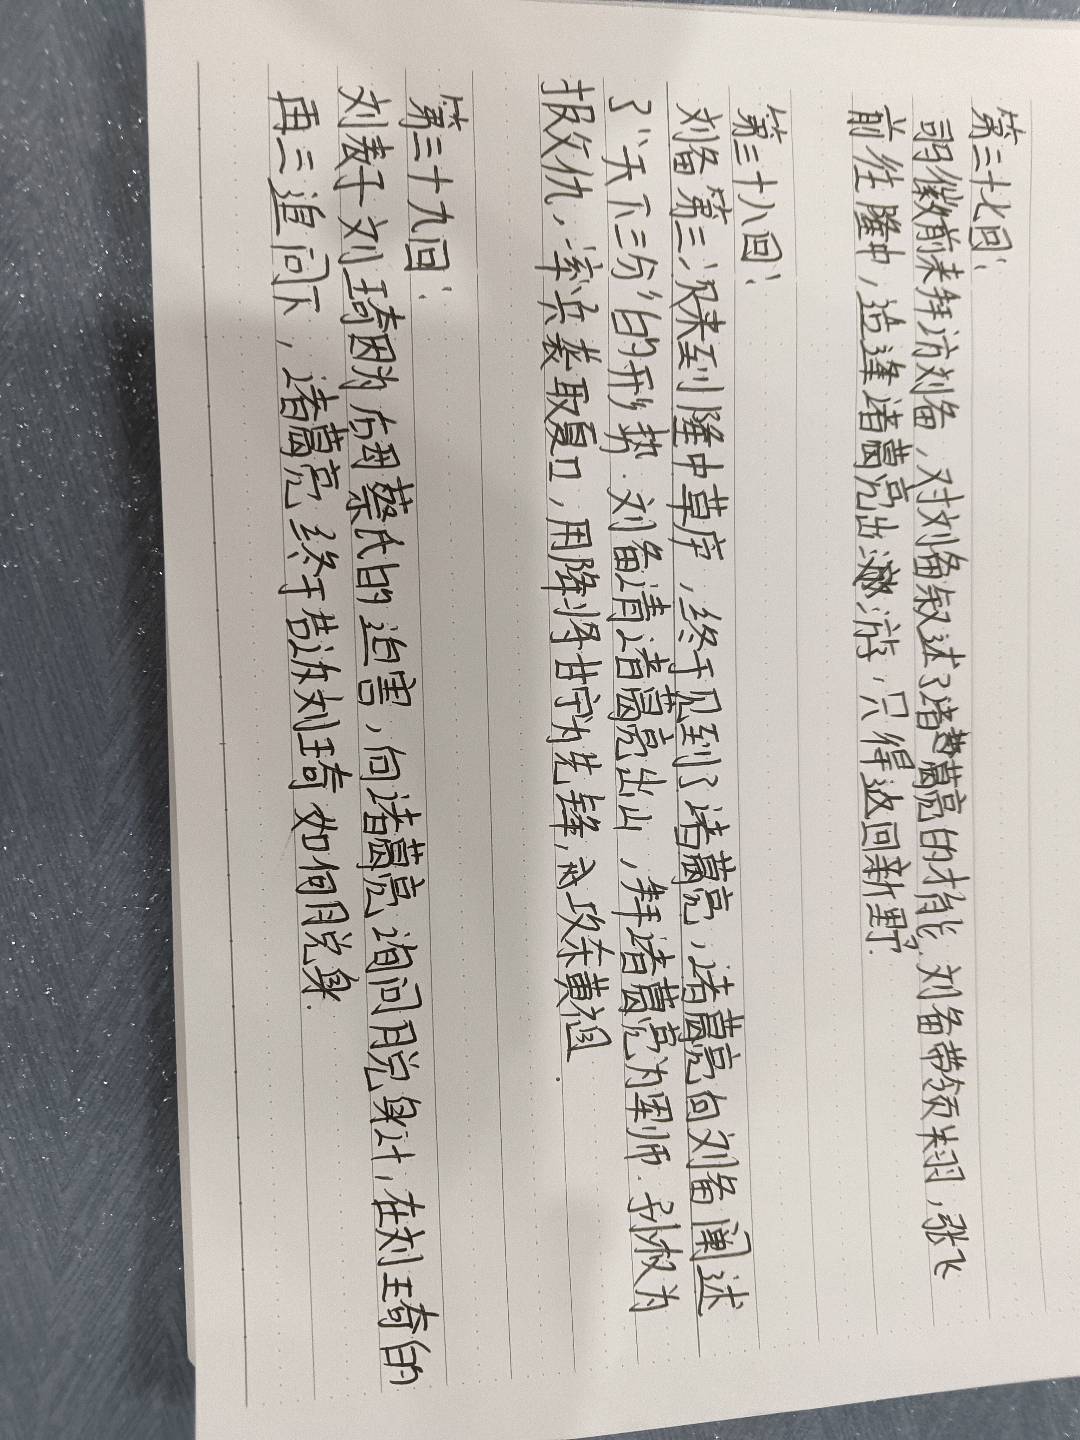 第三十七回：
司马徽前来拜访刘备，对刘备叙述了诸葛亮的才能.刘备带领关羽，张飞
前往隆中，造逢诸葛亮出游，只得返回新野.
第三十八回：
刘备第三次来到隆中草庐，终于见到了诸葛亮，诸葛亮向刘备阐述
了“天下三分”的形势.刘备请诸葛亮出山，拜诸葛亮为军师.孙权为
报父仇，率兵袭取夏口，用降将甘宁为先锋，攻东黄祖.
第三十九回：
刘表子刘琦因为后母蔡氏的迫害，向诸葛亮询问脱身计，在刘琦的
再三追问下，诸葛亮终于告诉刘琦如何脱身.